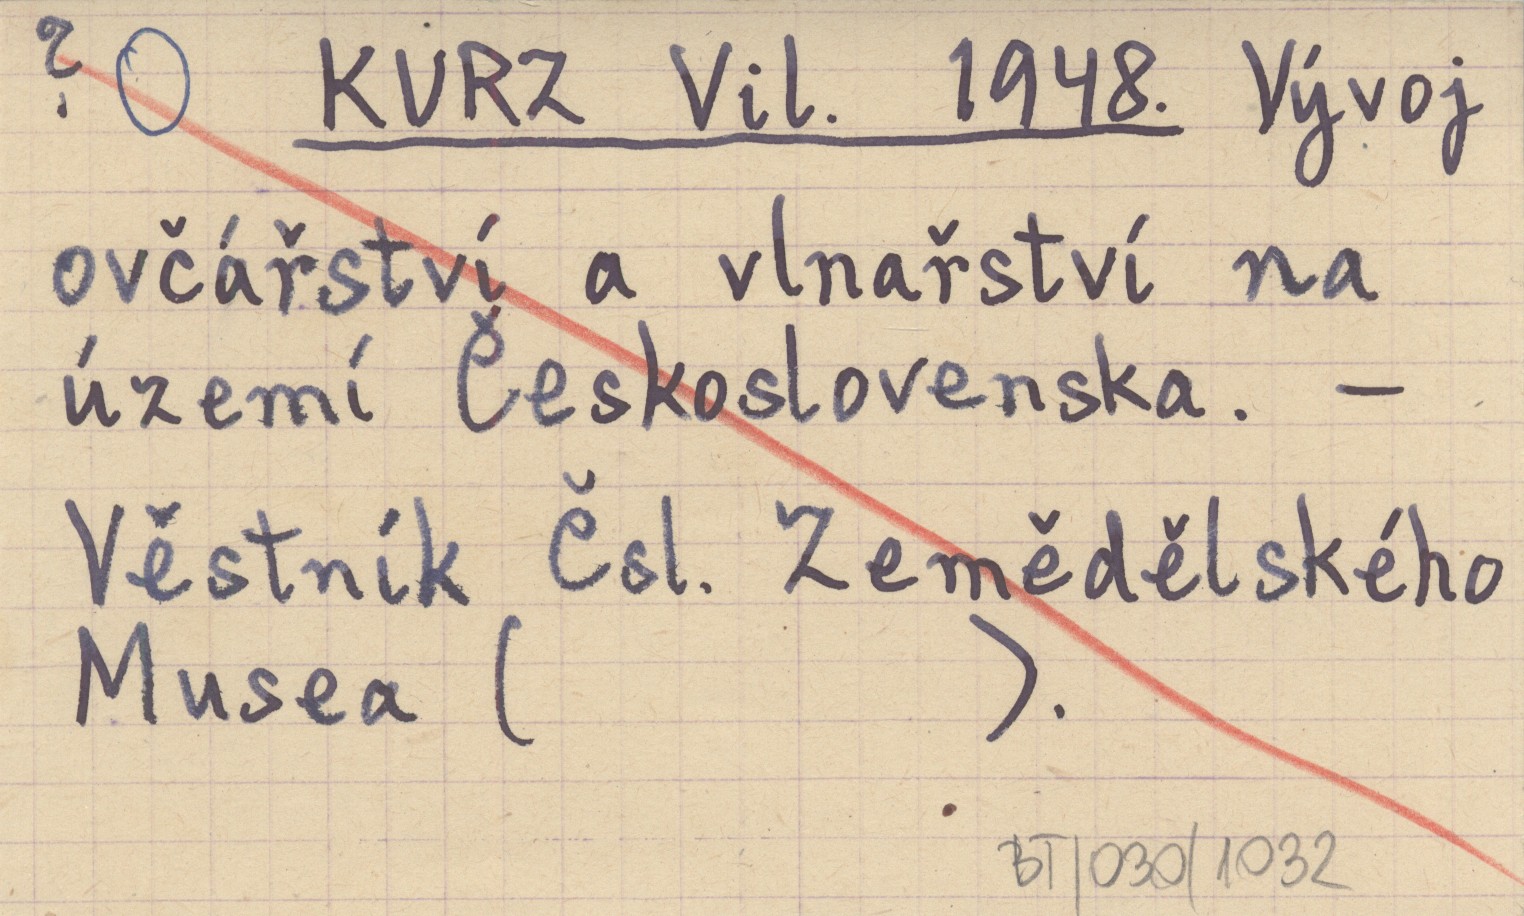 ? KURZ Vil. 1948. Vývoj
ovčářství a vlnařství na
území Československa. –
Věstník Čsl. Zemědělského
Musea ( ).
BT/030/1032